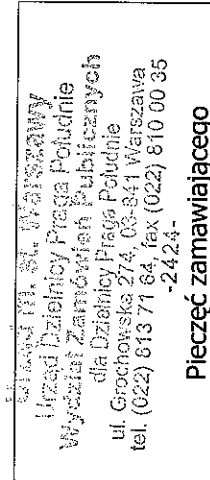 Urząd m. st. Warszawy
Urząd Dzielnicy Praga Południe
Wydział Zamówień Publicznych
dla Dzielnicy Praga Południe
ul. Grochowska 274, 03-841 Warszawa
tel. (022) 813 71 64, fax (022) 810 00 35
-2424-
Pieczęć zamawiającego